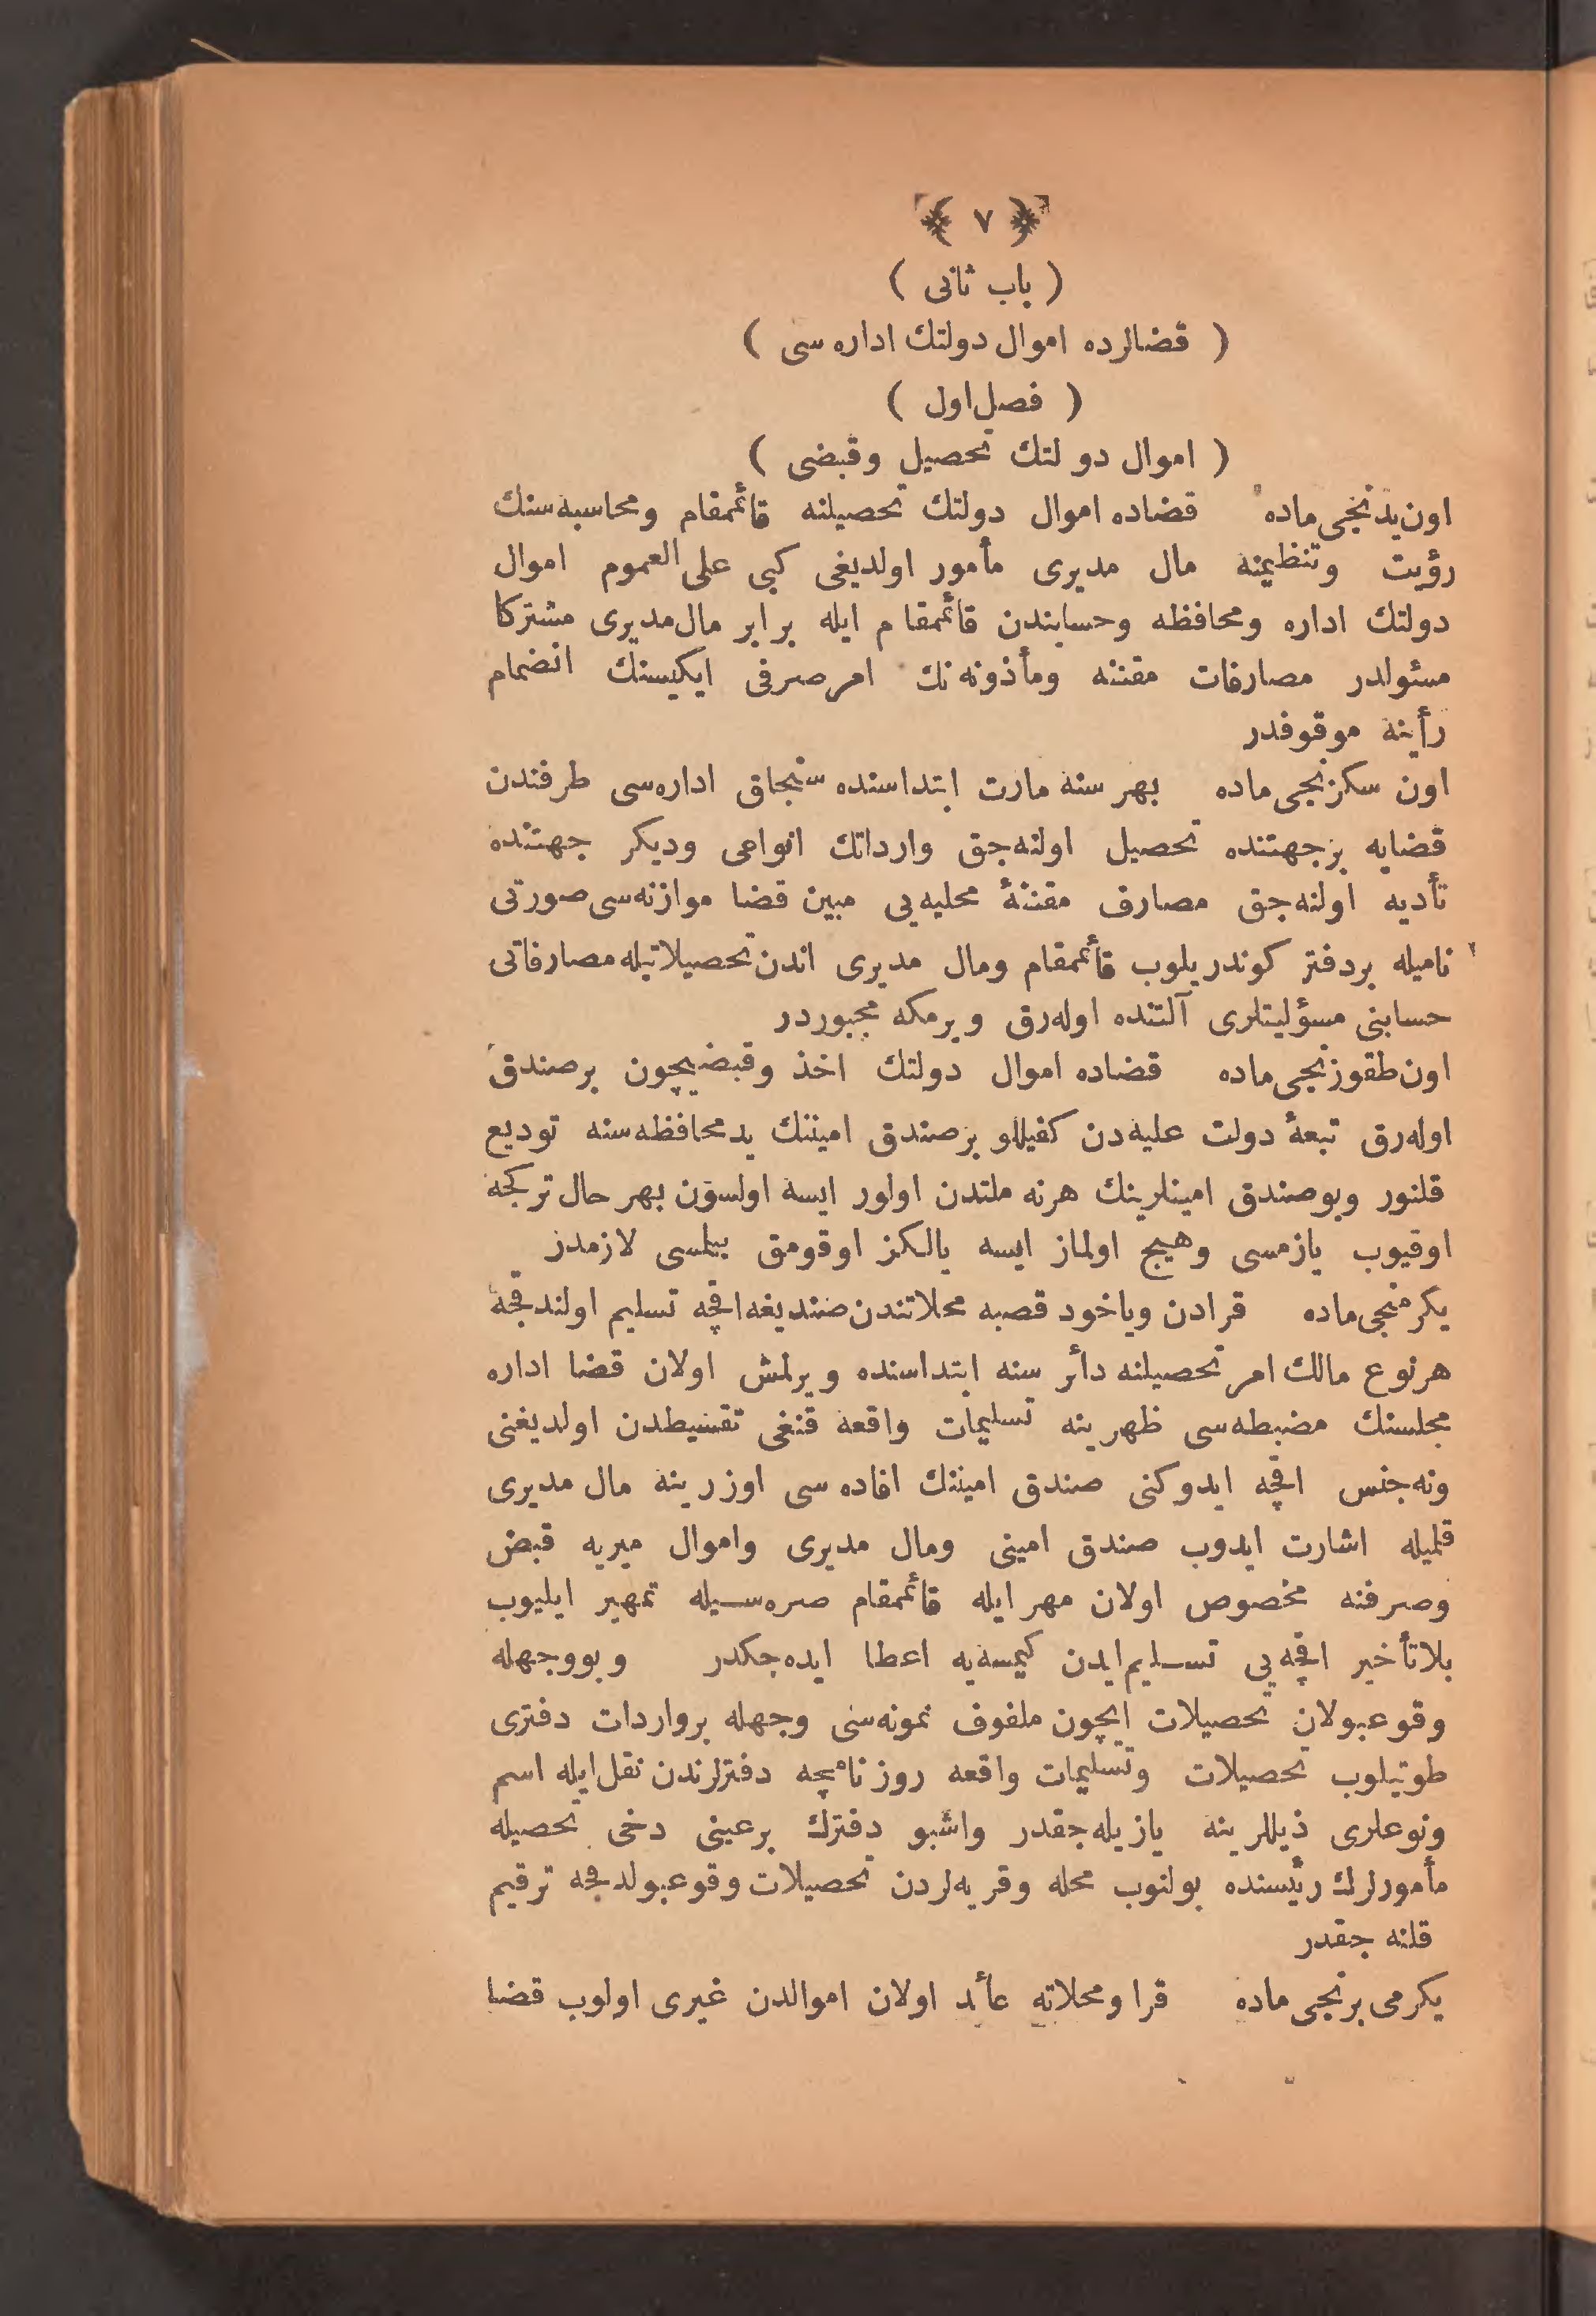 ﴿ ٧ ﴾
( باب ثانی )
( قضالرده اموال دولتك اداره سی )
( فصل اول )
( اموال دولتك تحصیل وقبضی )
اون یدنجی ماده قضاده اموال دولتك تحصیلنه قائممقام ومحاسبه سنك
رؤیت وتنظیمنه مال مدیری مأمور اولدیغی کبی علی العموم اموال
دولتك اداره ومحافظه وحسابندن قائممقام ایله برابر مال مدیری مشترکا
مسئولدر مصارفات مقننه ومأذونه نك امر صرفی ایکیسنك انضمام
رأینه موقوفدر
اون سکزنجی ماده بهر سنه مارت ابتداسنده سنجاق اداره سی طرفندن
قضایه برجهتنده تحصیل اولنه جق وارداتك انواعی ودیکر جهتنده
تأدیه اولنه جق مصارف مقننۀ محلیه یی مبین قضا موازنه سی صورتی
نامیله بردفتر کوندریلوب قائممقام ومال مدیری اندن تحصیلاتیله مصارفاتی
حسابنی مسؤلیتلری آلتنده اوله رق ویرمکه مجبوردر
اون طقوزنجی ماده قضاده اموال دولتك اخذ وقبضیچون برصندق
اوله رق تبعۀ دولت علیه دن کفیللو برصندق امیننك ید محافظه سنه تودیع
قلنور وبوصندق امینلرینك هرنه ملتدن اولور ایسه اولسون بهر حال ترکجه
اوقیوب یازمسی وهیچ اولماز ایسه یالکز اوقومق بیلسی لازمدر
یکرمنجی ماده قرادن ویاخود قصبه محلاتندن صندیغه اقچه تسلیم اولندقجه
هرنوع مالك امر تحصیلنه دائر سنه ابتداسنده ویرلمش اولان قضا اداره
مجلسنك مضبطه سی ظهرینه تسلیمات واقعه قنغی تقسیطدن اولدیغنی
ونه جنس اقچه ایدوکنی صندق امیننك افاده سی اوزرینه مال مدیری
قلمیله اشارت ایدوب صندق امینی ومال مدیری واموال میریه قبض
وصرفنه مخصوص اولان مهر ایله قائممقام صره سیله تمهیر ایلیوب
بلاتأخیر اقچه یی تسلیم ایدن کیمسه یه اعطا ایده جکدر وبووجهله
وقوعبولان تحصیلات ایچون ملفوف نمونه سی وجهله برواردات دفتری
طوتیلوب تحصیلات وتسلیمات واقعه روزنامچه دفترلرندن نقل ایله اسم
ونوعلری ذیللرینه یازیله جقدر واشبو دفترك برعینی دخی تحصیله
مأمورلرك رئیسنده بولنوب محله وقریه لردن تحصیلات وقوعبولدقجه ترقیم
قلنه جقدر
یکرمی برنجی ماده قرا ومحلاته عائد اولان اموالدن غیری اولوب قضا